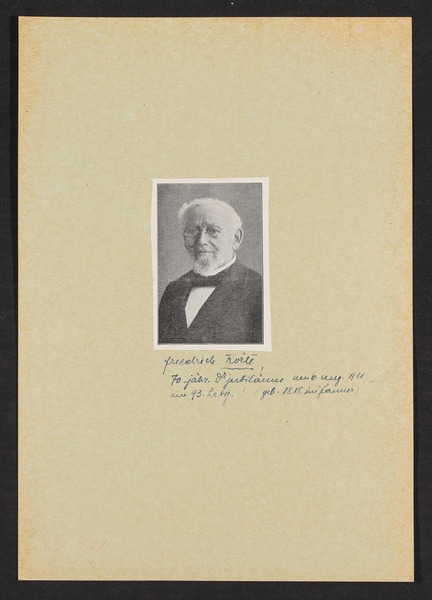 Friedrich Körte!
70 jähr. Dr jubiläum am 6. Aug. 1911
im 93. Lebj.! (geb. 1818 im Januar)